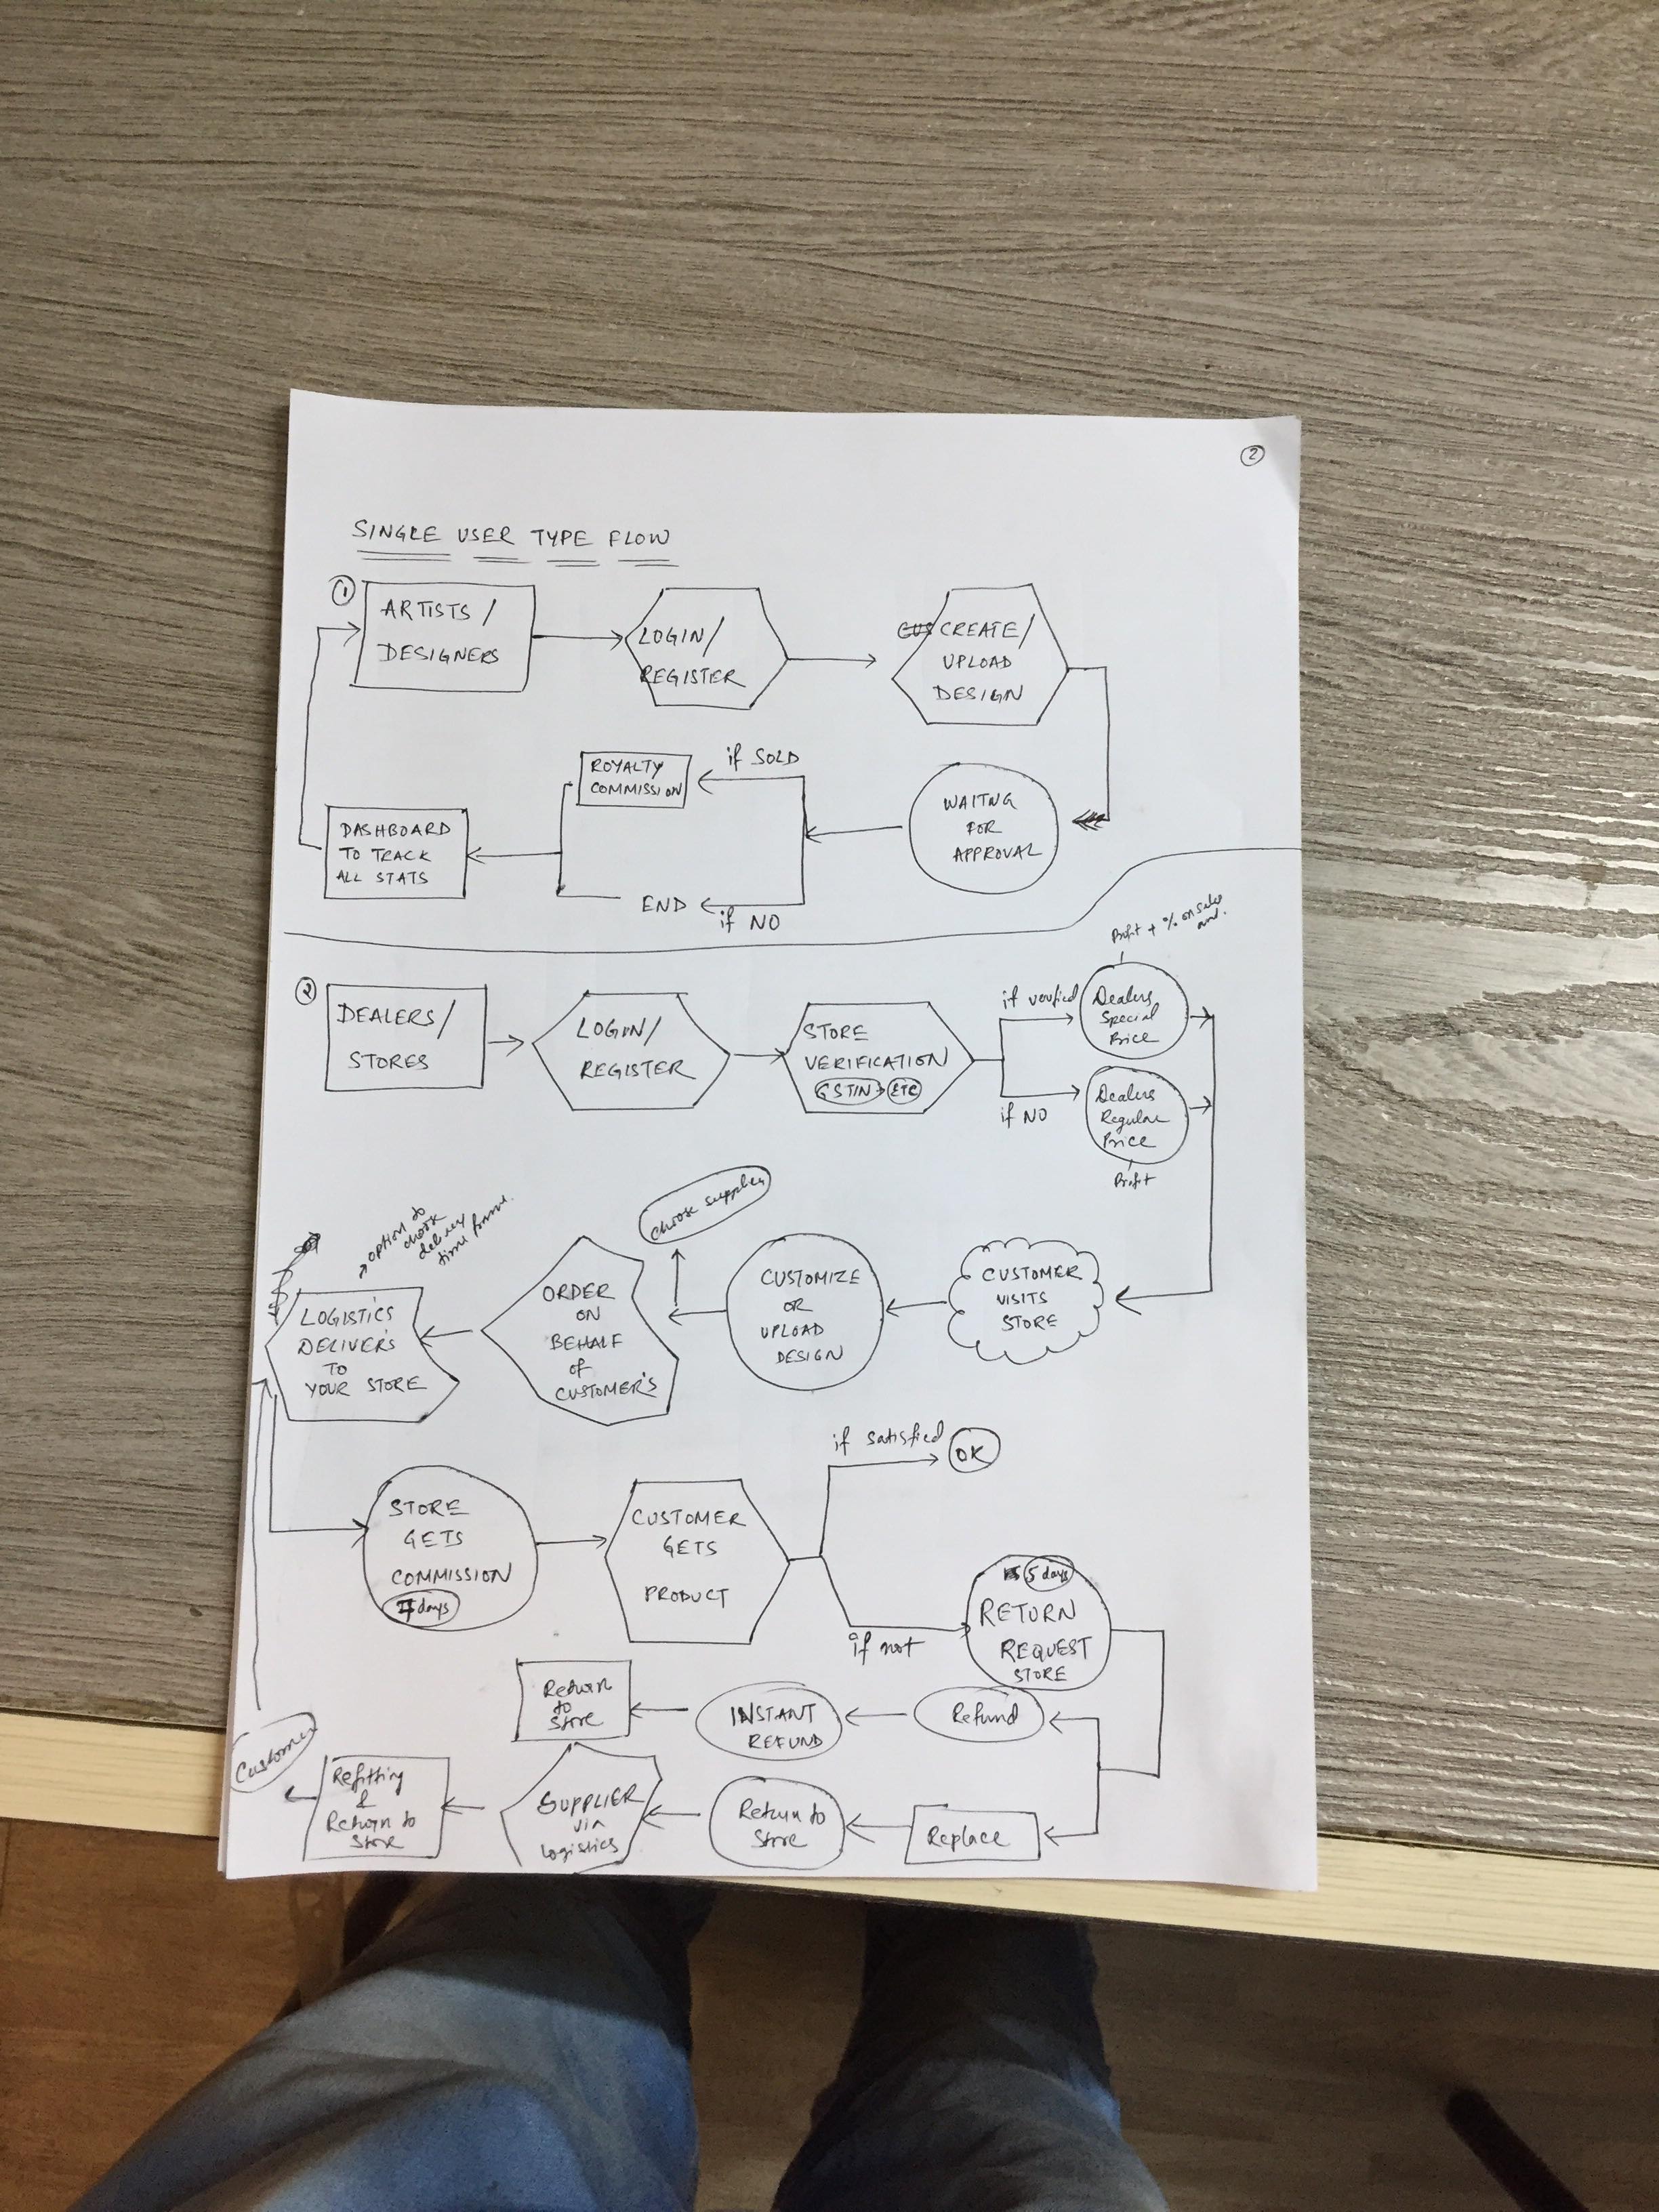 2
SINGLE USER TYPE FLOW
1
ARTISTS /
DESIGNERS
LOGIN/
REGISTER
CREATE/
UPLOAD
DESIGN
WAITNG
FOR
APPROVAL
if SOLD
ROYALTY
COMMISSION
if NO
END
DASHBOARD
TO TRACK
ALL STATS
2
DEALERS/
STORES
LOGIN/
REGISTER
STORE
VERIFICATION
GSTIN ETC
if verified
Profit + % on sales
Dealers
Special
Price
if NO
Dealers
Regular
Price
Profit
CUSTOMER
VISITS
STORE
CUSTOMIZE
OR
UPLOAD
DESIGN
choose supplier
ORDER
ON
BEHALF
of
CUSTOMER'S
option to
choose
delivery
time frame.
LOGISTICS
DELIVER'S
TO
YOUR STORE
STORE
GETS
COMMISSION
7 days
CUSTOMER
GETS
PRODUCT
if satisfied
OK
if not
5 days
RETURN
REQUEST
STORE
Refund
INSTANT
REFUND
Return
to
Store
Replace
Return to
Store
SUPPLIER
via
logistics
Refitting
&
Return to
Store
Customer